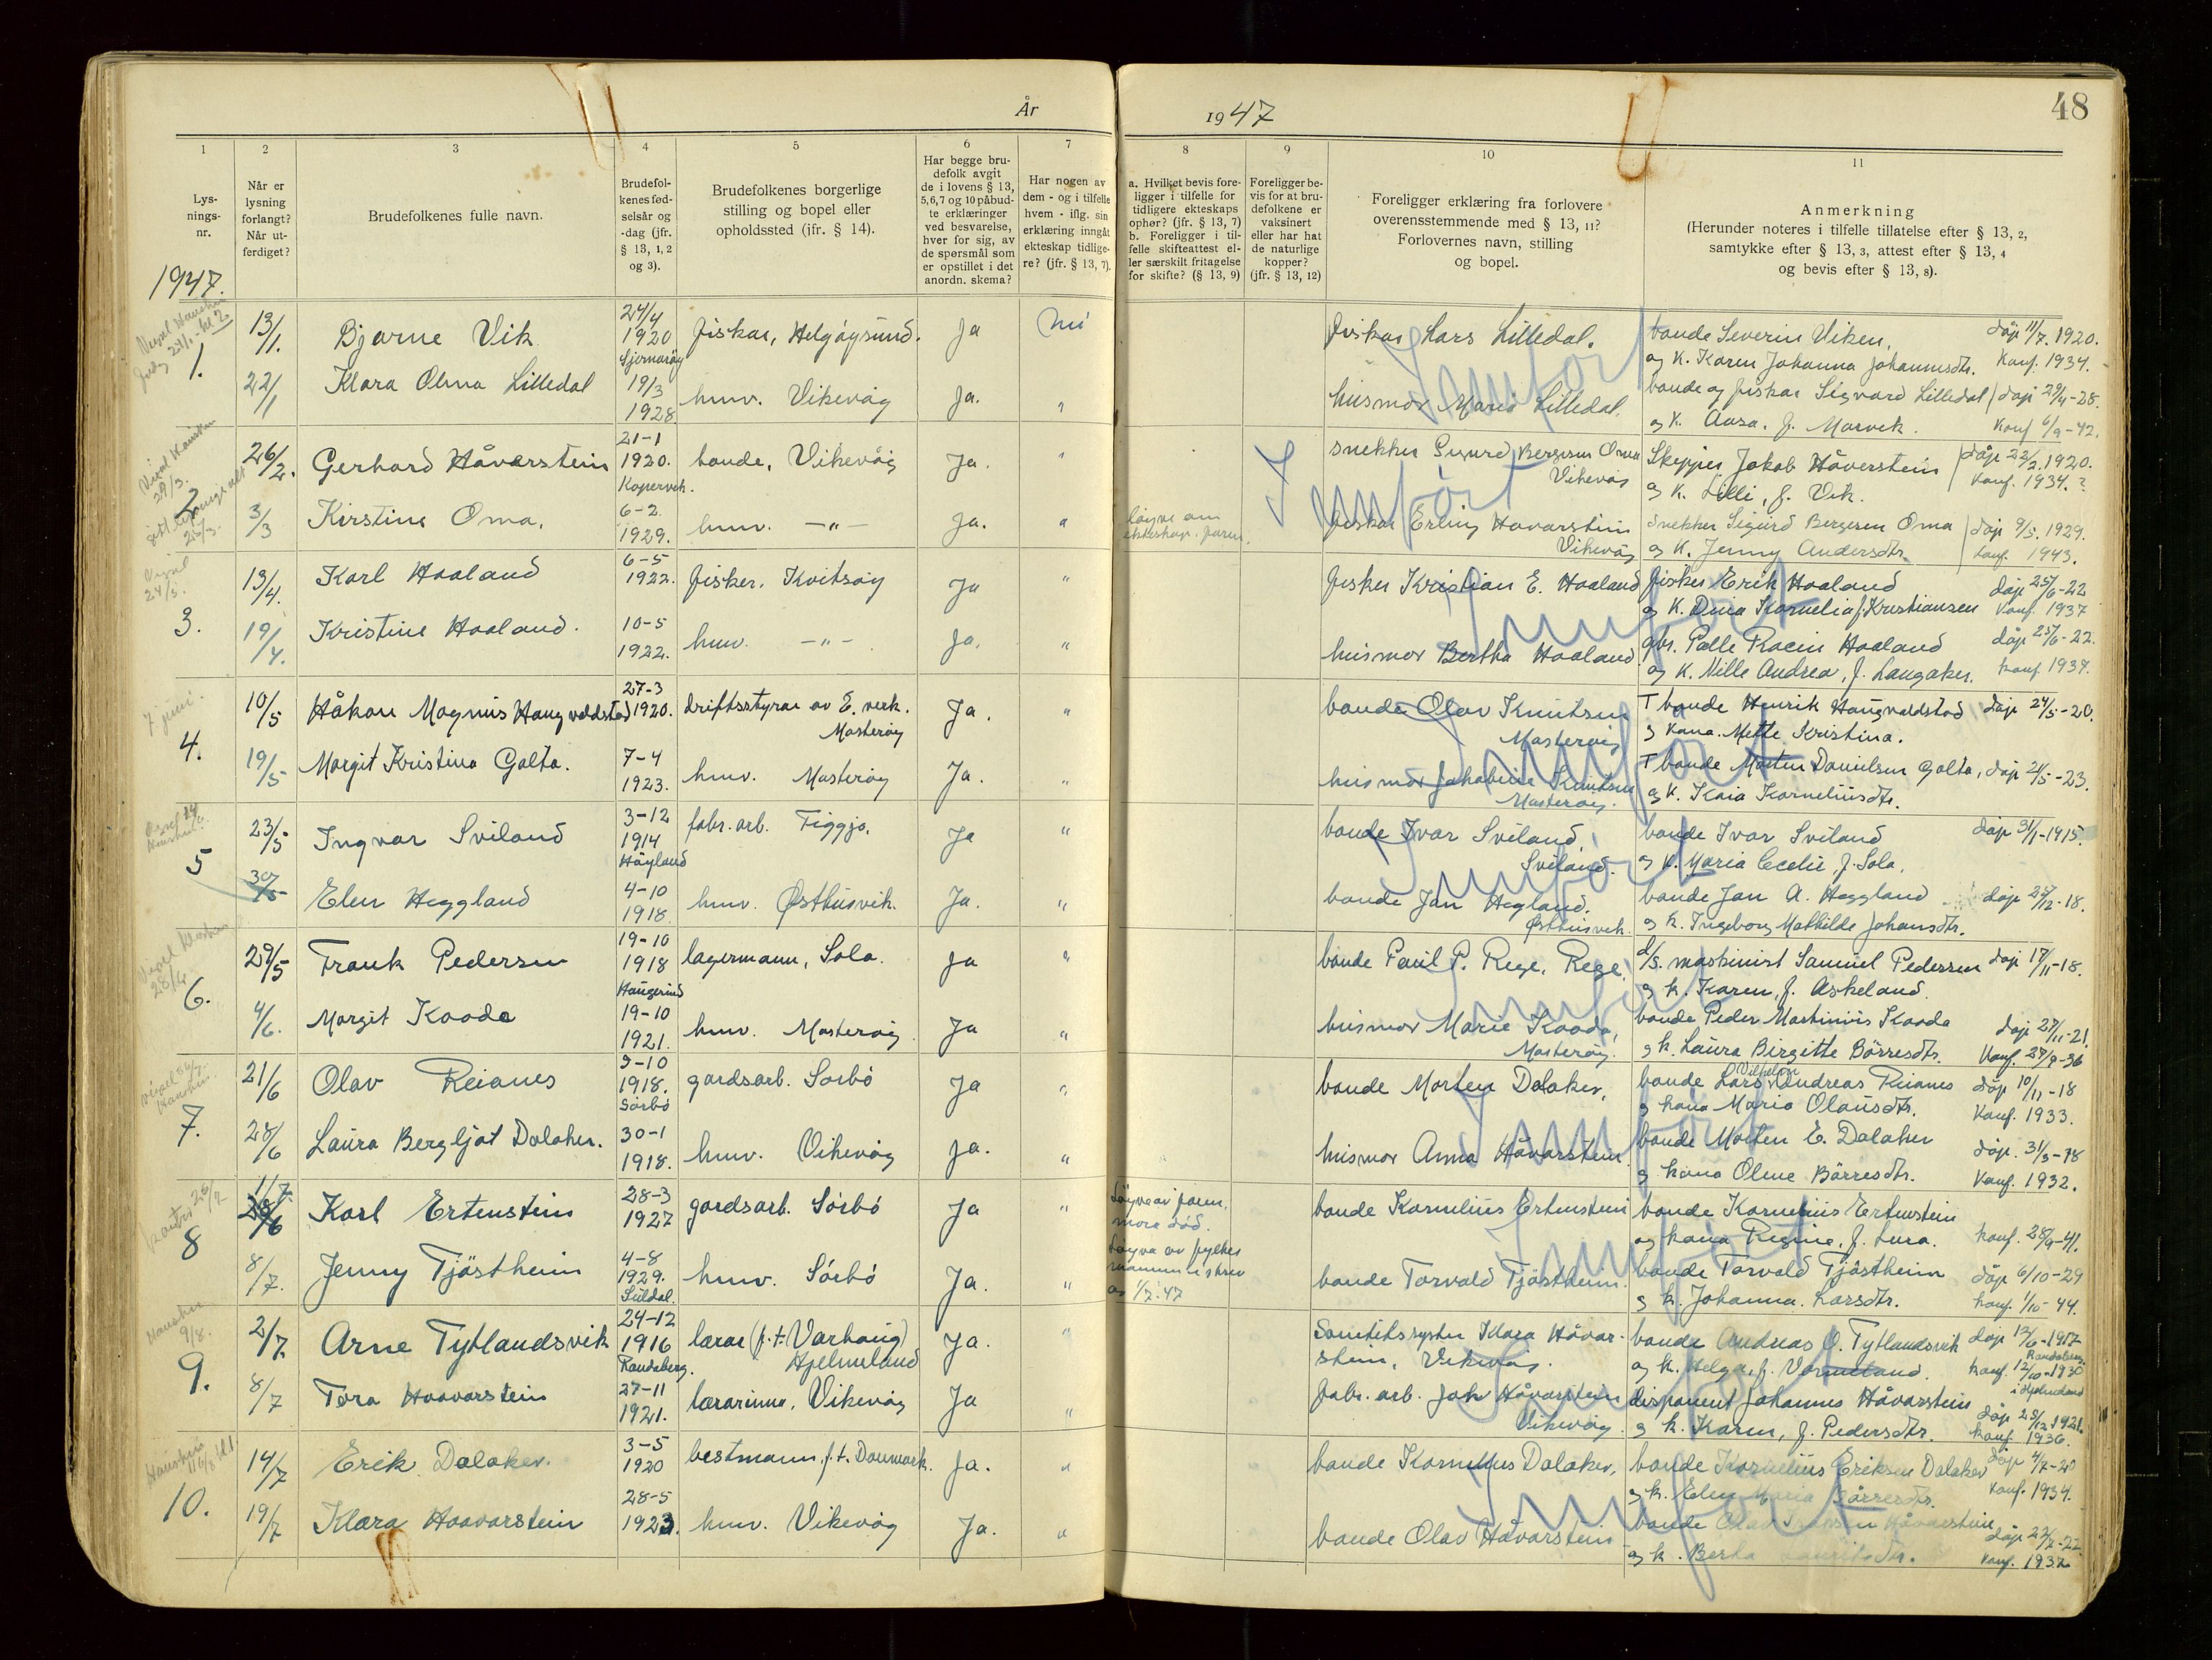 År
1947
48
1
Lys-
nings-
nr.
2
Når er
lysning
forlangt?
Når ut-
ferdiget?
3
Brudefolkenes fulle navn.
4
Brudefol-
kenes fød-
selsår og
-dag (jfr.
§ 13, 1, 2
og 3).
5
Brudefolkenes borgerlige
stilling og bopel eller
opholdssted (jfr. § 14).
6
Har begge bru-
defolk avgit
de i lovens § 13,
5,6,7 og 10 påbud-
te erklæringer
ved besvarelse,
hver for sig, av
de spørsmål som
er opstillet i det
anordn. skema?
7
Har nogen av
dem - og i tilfelle
hvem - iflg. sin
erklæring inngåt
ekteskap tidlige-
re? (jfr. § 13, 7).
8
a. Hvilket bevis fore-
ligger i tilfelle for
tidligere ekteskaps
opher? (jfr. § 13, 7)
b. Foreligger i til-
felle skifteattest el-
ler særskilt fritagelse
for skifte? (§ 13, 9)
9
Foreligger be-
vis for at bru-
defolkene er
vaksinert
eller har hat
de naturlige
kopper?
(jfr. § 13, 12)
10
Foreligger erklæring fra forlovere
overensstemmende med § 13, 11?
Forlovernes navn, stilling
og bopel.
11
Anmerkning
(Herunder noteres i tilfelle tillatelse efter § 13, 2,
samtykke efter § 13, 3, attest efter § 13, 4
og bevis efter § 13, 8).
1947.
1.
13/1. Bjarne Vik 24/4 1920 fiskar, Helgøysund. Ja nei fiskar Lars Lilledal. bonde Severin Viken, døp 11/7. 1920.
Sjernarøy og K. Karen Johanna Johannesdtr. Konf. 1934.
22/1 Klara Olina Lilledal 19/3 1928. hmv. Vikevåg Ja. " husmor Marie Lilledal. bonde og fiskar Sigvard Lilledal døp 29/4-28.
og K. Aasa, f. Marvik. Konf 6/9-42.
2
26/2. Gerhard Håvarstein 21-1 1920. bonde, Vikevåg Ja. " snekker Sigurd Bergesen Oma Skipper Jakob Håverstein døp 22/2.1920.
Kopervik. Vikevåg og K. Lilli, f. Vik. Konf. 1934.?
3/3 Kirstine Oma. 6-2. 1929. hmv. —"— Ja. " løyve om fiskar Erling Havarstein snekker Sigurd Bergesen Oma døp 9/5. 1929.
ekteskap. Vikevåg og K. Jenny Andersdtr. Konf. 1943.
3.
13/4. Karl Haaland 6-5 1922. fisker, Kvitsøy Ja " fisker Kristian E. Haaland fisker Erik Haaland døp 25/6-22
og K. Oma Kornelia f. Kristiansen Konf. 1937
19/4. Kristine Haaland. 10-5 1922. hmv. —"— Ja. " husmor Bertha Haaland gbr. Palle Racin Haaland døp 25/6-22.
og K. Nille Andrea, f. Langaker. Konf 1937.
7 juni.
4.
10/5 Håkon Magnus Haugvaldstad 27-3 1920. driftsstyrar av E. verk. Ja. " bonde Olav Knutsen T bonde Henrik Haugvaldstad døp 24/5-20.
Mosterøy Mosterøy og Kona. Mette Kristina.
19/5 Margit Kristina Galta. 7-4 1923. hmv. Mosterøy Ja. " husmor Jakobine Knutsen T bonde Morten Danielsen Galta, døp 21/5-23.
Mosterøy. og K. Kaia Korneliusdtr.
5
23/5 Ingvar Sviland 3-12 1914 fabr. arb. Figgjo. Ja " bonde Ivar Sviland, bonde Ivar Sviland døp 31/1-1915.
Høyland Sviland. og K. Maria Cecelie, f. Sola.
30/5 Elen Heggland 4-10 1918. hmv. Østhusvik. Ja. " bonde Jan Hegland. bonde Jan A. Heggland døp 25/12-18.
Østhusvik. og K. Ingeborg Mathilde Johansdtr.
6.
29/5 Frank Pedersen 19-10 1918 lagermann, Sola. Ja " bonde Paul P. Rege, Rege. d/s. maskinist Samuel Pedersen døp 17/11-18.
Haugesund og k. Karen, f. Askeland.
4/6. Margit Kaada 19-10 1921. hmv. Mosterøy Ja " husmor Marie Kaada, bonde Peder Martinius Kaada døp 27/11-21.
Mosterøy. og k. Laura Birgitte Børresdtr. Konf. 27/9-36
7.
21/6 Olav Reianes 9-10 1918. gardsarb. Sørbø Ja " bonde Morten Dalaker, bonde Lars Vilhelm Andreas Reianes døp 10/11-18
Sørbø og kona Maria Olausdtr. Konf. 1933.
28/6 Laura Bergljot Dalaker. 30-1 1918. hmv. Vikevåg Ja. " husmor Anna Håvarstein. bonde Morten E. Dalaker døp. 31/3-18
og kona Oline Børresdtr. Konf. 1932.
8
1/7 28/6 Karl Ertenstein 28-3 1927 gardsarb. Sørbø Ja " Løyve av faren, bonde Kornelius Ertenstein bonde Kornelius Ertenstein
mora død. og kona Regine, f. Lura. Konf. 28/9-41.
8/7. Jenny Tjøstheim 4-8 1929. hmv. Sørbø Ja. " Løyve av fylkes bonde Torvald Tjøstheim. bonde Torvald Tjøstheim døp 6/10-29
Suldal. mannen i skriv av 1/7.47 og k. Johanna. Larsdtr. Konf. 1/10-44.
9.
2/7 Arne Tytlandsvik 24-12 1916 lærar (f.t. Varhaug) Ja. " Samtidssyster Klara Håvar- bonde Andreas O. Tytlandsvik døp 12/6-1917
Randaberg. Hjelmeland stein, Vikevåg. og k. Helga, f. Vormeland. Randaberg. konf. 12/10-1930 i Hjelmeland
8/7 Tora Haavarstein 27-11 1921. lærarinna, Vikevåg Ja " fabr. arb. Jak Håvarstein disponent Johannes Håvarstein døp 25/12 1921.
Vikevåg og k. Karen, f. Pedersdtr. konf. 1936.
10.
14/7 Erik Dalaker. 3-5 1920 bestmann, f.t. Danmark. Ja. " bonde Kornelius Dalaker, bonde Kornelius Eriksen Dalaker døp 4/7-20
og k. Elen Maria Børresdtr. Konf. 1934.
19/7 Klara Haavarstein 28-5 1923. hmv. Vikevåg Ja. " bonde Olav Håvarstein bonde Olav Håvarstein døp 22/7-22
og k. Berta Lauritsdtr. Konf. 1937.
Jamført
Jamført
Jamført
Jamført
Jamført
Jamført
Jamført
Jamført
Jamført
Jamført